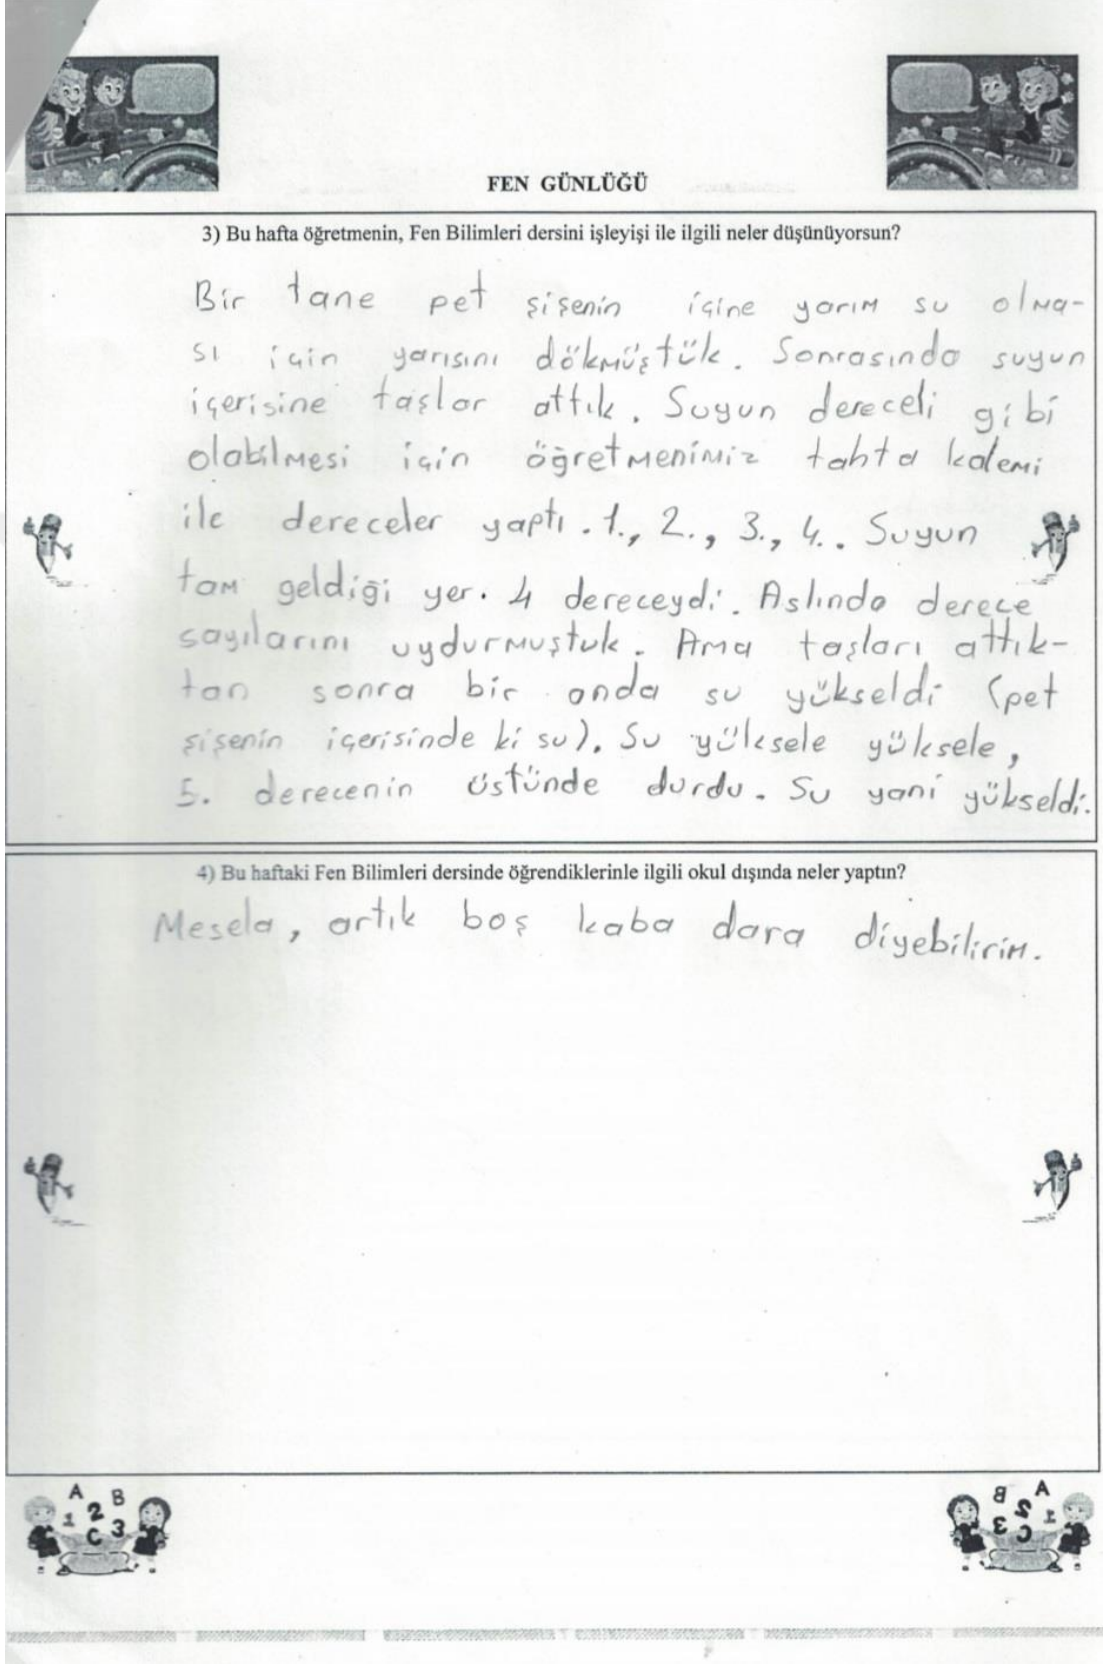 FEN GÜNLÜĞÜ
3) Bu hafta öğretmenin, Fen Bilimleri dersini işleyişi ile ilgili neler düşünüyorsun?
Bir tane pet şişenin içine yarım su olma-
sı için yarısını dökmüştük. Sonrasında suyun
içerisine taşlar attık. Suyun dereceli gibi
olabilmesi için öğretmenimiz tahta kalemi
ile dereceler yaptı. 1., 2., 3., 4.. Suyun
tam geldiği yer. 4 dereceydi. Aslında derece
sayılarını uydurmuştuk. Ama taşları attık-
tan sonra bir anda su yükseldi (pet
şişenin içerisinde ki su). Su yüksele yüksele,
5. derecenin üstünde durdu. Su yani yükseldi.
4) Bu haftaki Fen Bilimleri dersinde öğrendiklerinle ilgili okul dışında neler yaptın?
Mesela, artık boş kaba dara diyebilirim.
A B
1 2
C 3
A B
1 2
C 3